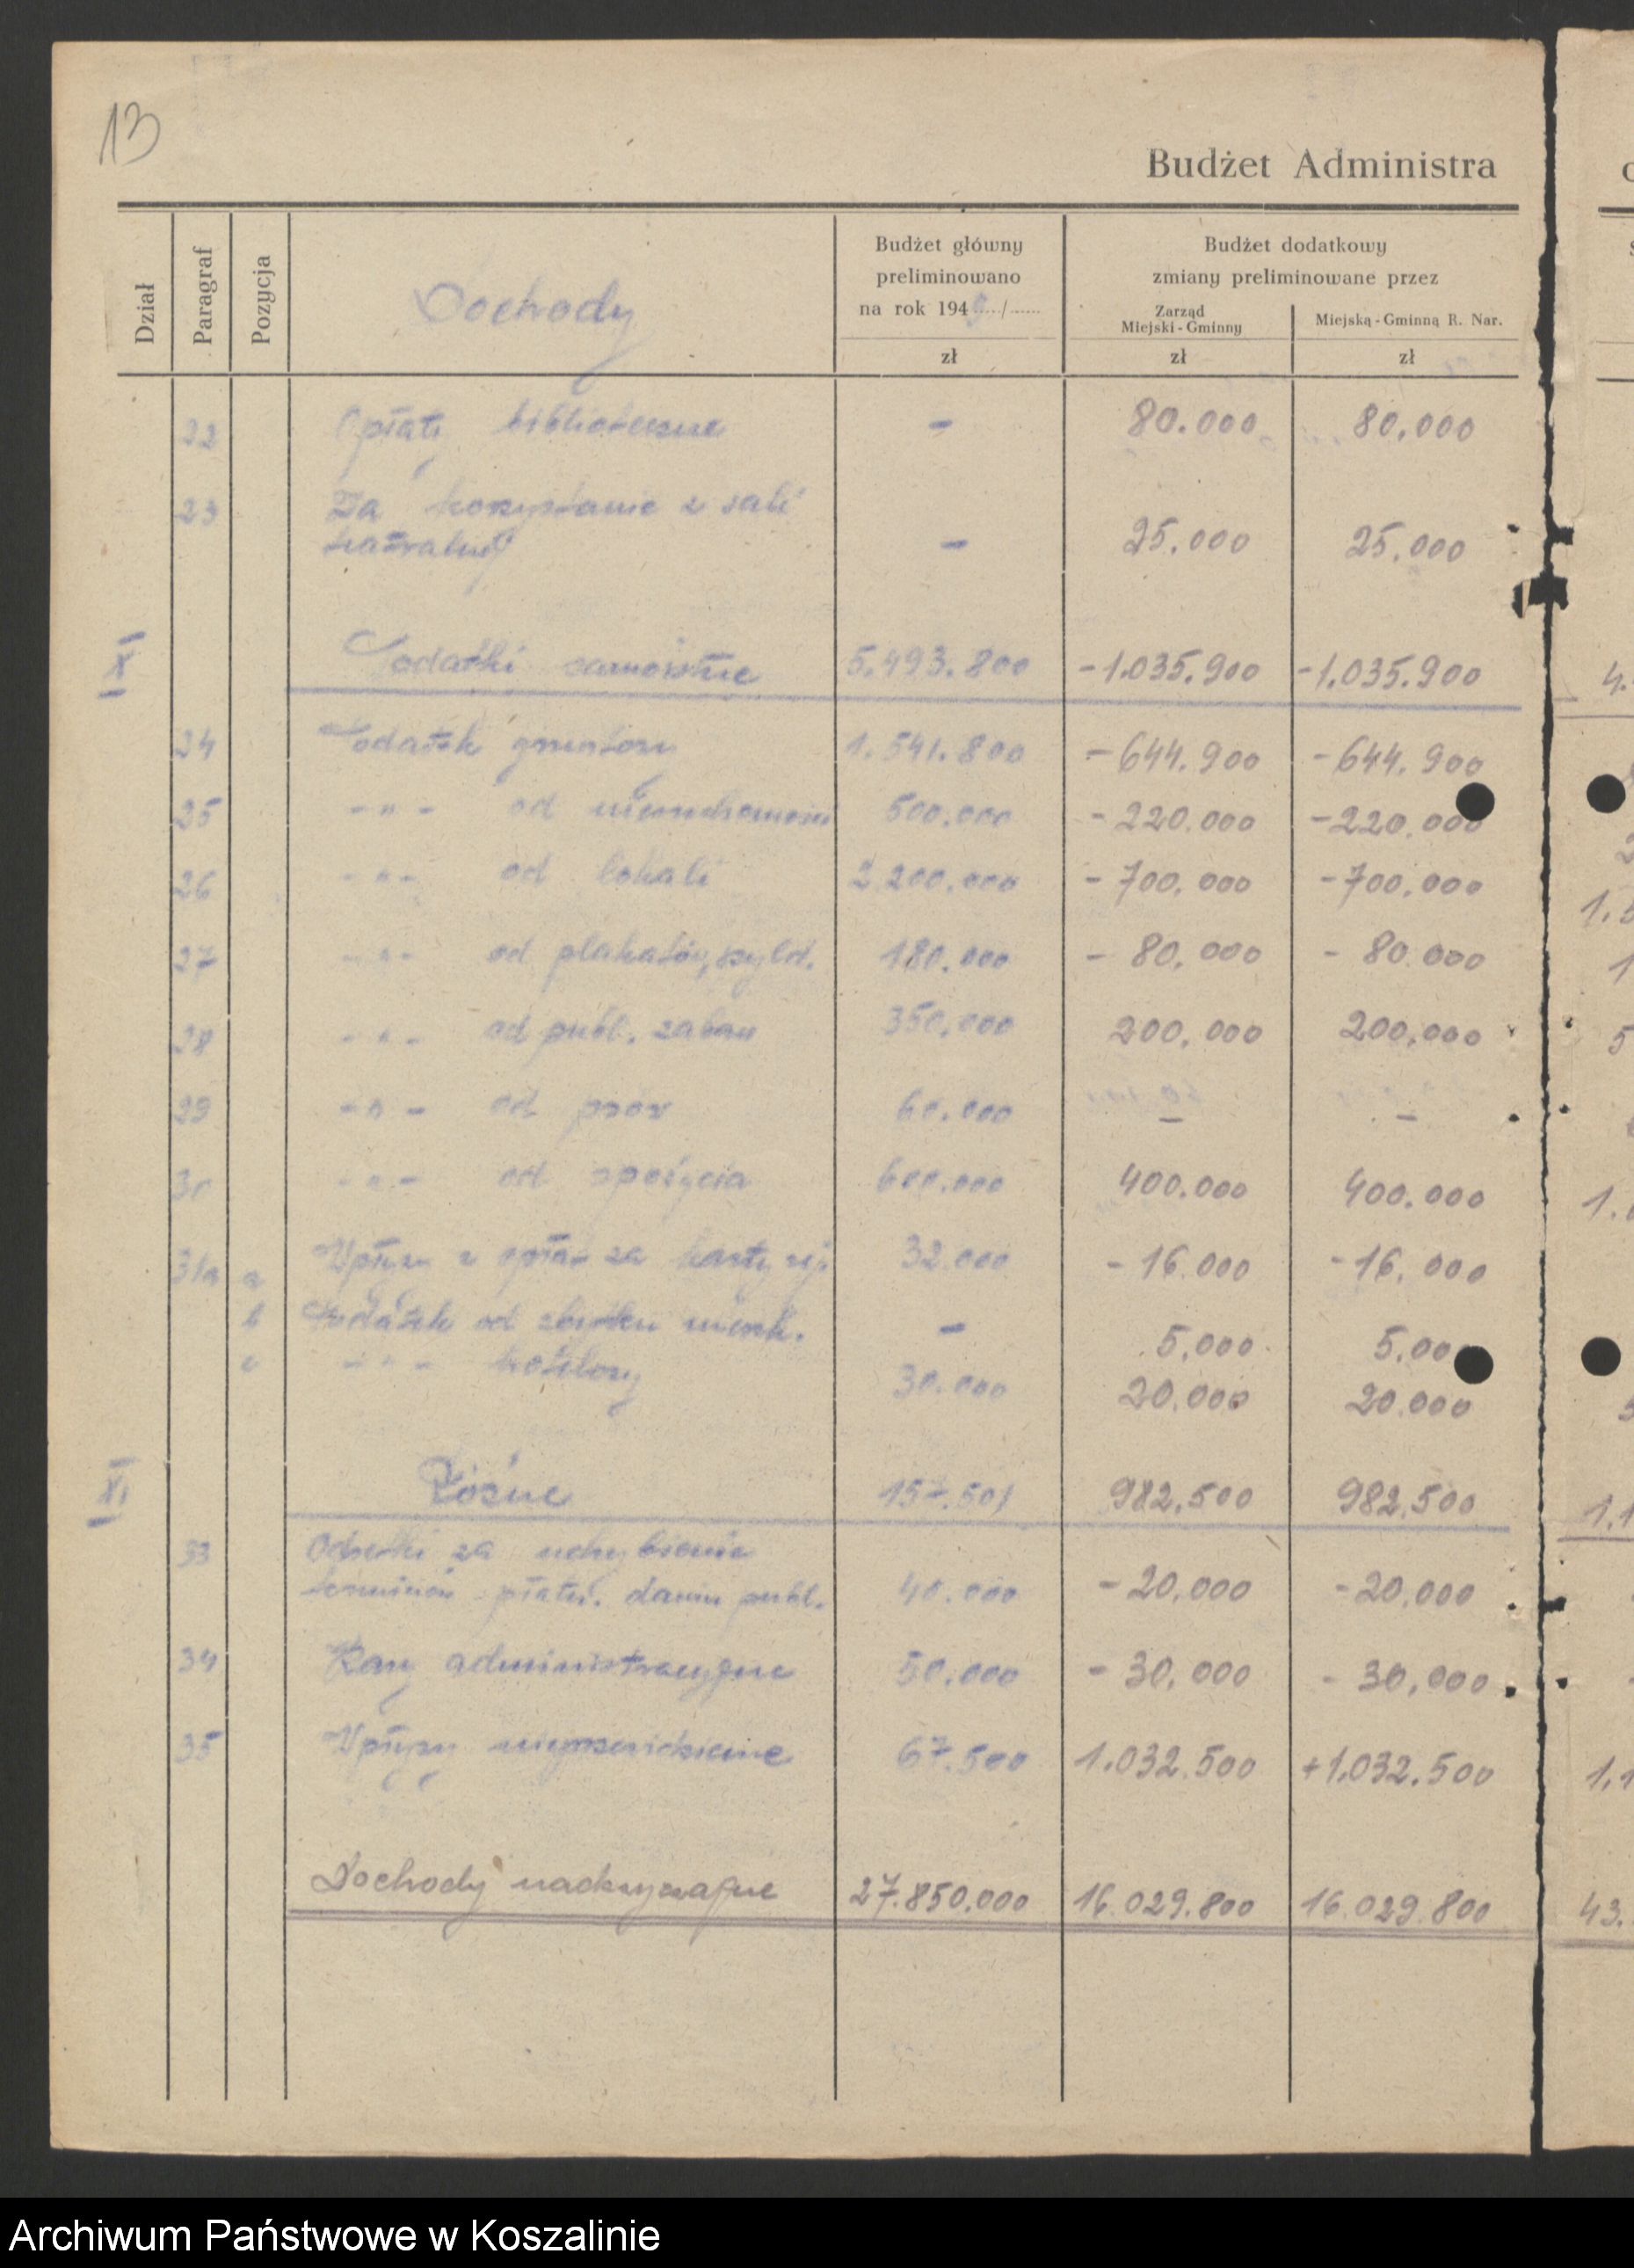 13
Budżet Administra
Dział
Paragraf
Pozycja
Dochody
Budżet główny
preliminowano
na rok 194 /
zł
Budżet dodatkowy
zmiany preliminowane przez
Zarząd
Miejski-Gminny
zł
Miejską-Gminną R. Nar.
zł
22 Opłaty biblioteczne - 80.000 80.000
23 Za korzystanie z sali
teatralnej - 25.000 25.000
X Podatki samoistne 5.493.800 -1.035.900 -1.035.900
24 Podatek gruntowy 1.541.800 -644.900 -644.900
25 -"- od nieruchomości 500.000 -220.000 -220.000
26 -"- od lokali 2.200.000 -700.000 -700.000
27 -"- od plakatów, szyld. 180.000 - 80.000 - 80.000
28 -"- od publ. zabaw 350.000 200.000 200.000
29 -"- od psów 60.000 - -
30 -"- od spożycia 600.000 400.000 400.000
31a a Wpływy z opłat za karty rej. 32.000 - 16.000 -16.000
b Podatek od zbytku mieszk. - 5.000 5.00
c -"- hotelowy 30.000 20.000 20.000
XI Różne 157.501 982.500 982.500
33 Odsetki za uchybienie
terminów płatn. danin publ. 40.000 -20.000 -20.000
34 Kary administracyjne 50.000 - 30.000 - 30.000
35 Wpływy nieprzewidziane 67.500 1.032.500 +1.032.500
Dochody nadzwyczajne 27.850.000 16.029.800 16.029.800
43.
Archiwum Państwowe w Koszalinie